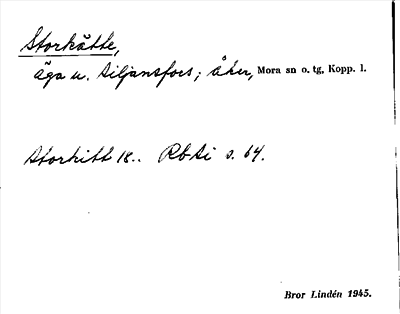 Storkätte,
äga u. Siljansfors; åker, Mora sn o. tg, Kopp. l.
Storkitt 18.. RbSi s. 64.
Bror Lindén 1945.